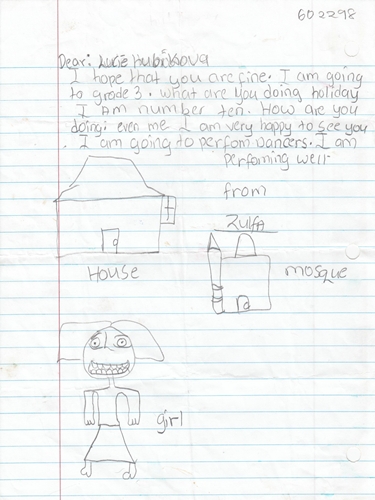 602298
Dear: Lucie Hubínkova
I hope that you are fine. I am going
to grade 3. what are you doing holiday
I Am number ten. How are you
doing. even me I am very happy to see you
. I am going to perfom Dancers. I am
perfoming well.
from
Zulfa
House
mosque
girl